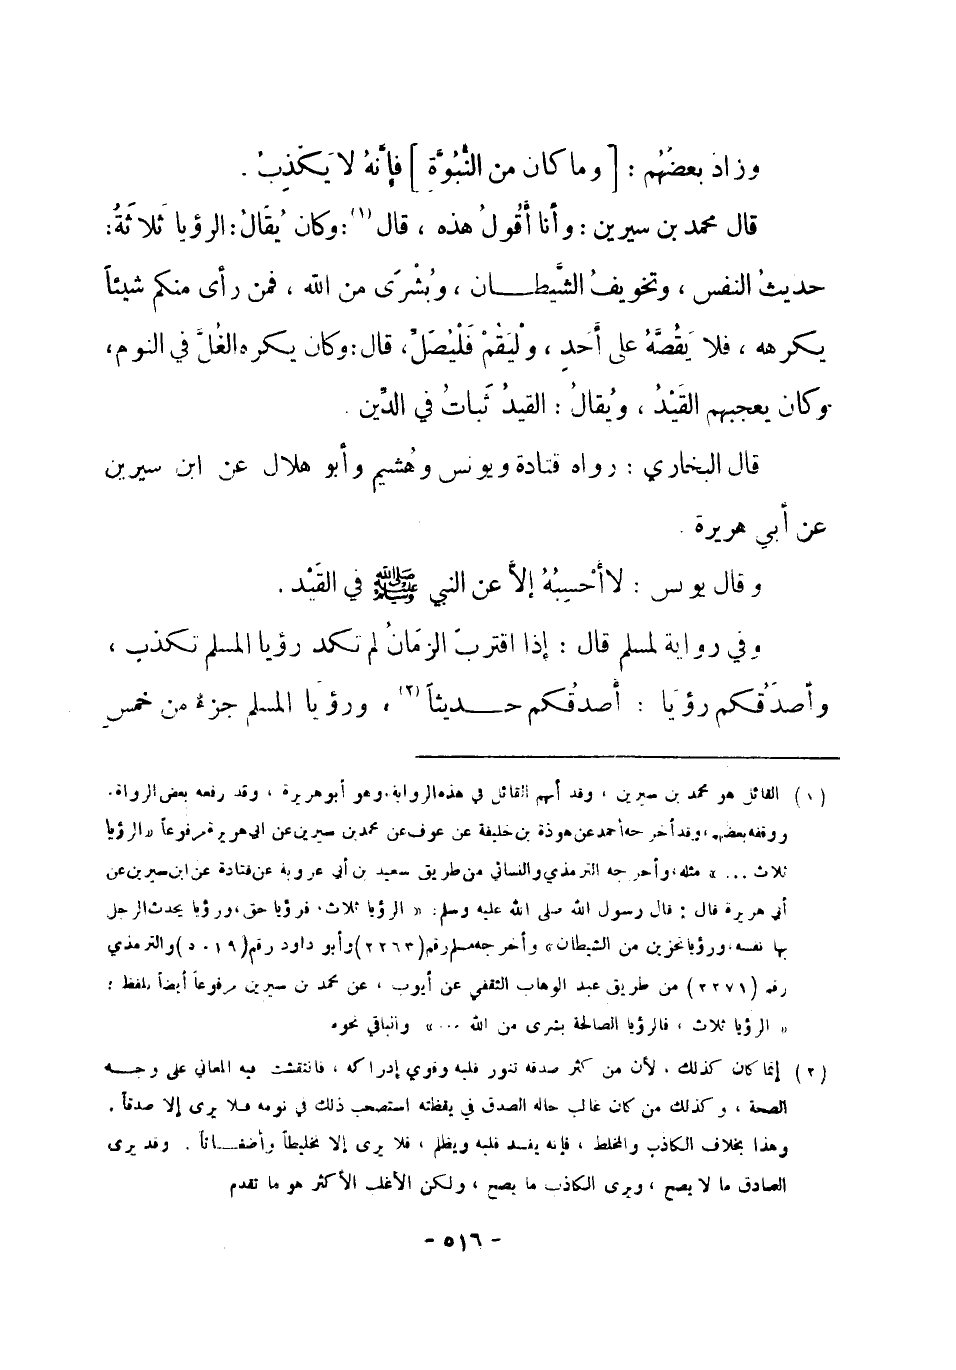 وزاد بعضُهُم : [ وما كان من النُّبُوَّةِ ] فإنَّهُ لا يَكْذِبُ .
قال محمد بن سيرين : وأنا أَقُولُ هذه ، قال (١) : وكان يُقَالُ : الرؤيا ثَلاثَةُ :
حديثُ النفس ، وتخويفُ الشَّيطان ، وبُشْرَى من الله ، فمن رأى منكم شيئاً
يكرهه ، فلا يَقُصَّهُ على أَحَدٍ ، ولْيَقُمْ فَلْيُصَلِّ ، قال : وكان يكره الغُلَّ في النوم ،
وكان يعجبهم القَيْدُ ، ويُقالُ : القيدُ ثَباتٌ في الدِّين .
قال البخاري : رواه قتادة ويونس وهُشيم وأبو هلال عن ابن سيرين
عن أبي هريرة .
وقال يونس : لا أَحْسِبُهُ إلاَّ عن النبي ﷺ في القَيْد .
وفي رواية لمسلم قال : إذا اقتربَ الزمَانُ لم تكد رؤيا المسلم تكذب ،
وأصدَقُكم رؤيَا : أصدقُكم حديثاً (٢) ، ورؤيَا المسلم جزءٌ من خمس
(١) القائل هو محمد بن سيرين ، وقد أبهم القائل في هذه الرواية ، وهو أبو هريرة ، وقد رفعه بعض الرواة .
ووقفه بعضهم ، وقد أخرجه أحمد عن هوذة بن خليفة عن عوف عن محمد بن سيرين عن ابي هريرة مرفوعاً « الرؤيا
ثلاث ... » مثله ، وأخرجه الترمذي والنسائي من طريق سعيد بن أبي عروبة عن قتادة عن ابن سيرين عن
أبي هريرة قال : قال رسول الله صلى الله عليه وسلم : « الرؤيا ثلاث . فرؤيا حق ، ورؤيا يحدث الرجل
بها نفسه ، ورؤيا تحزين من الشيطان » وأخرجه مسلم رقم (٢٢٦٣) وأبو داود رقم (٥٠١٩) والترمذي
رقم (٢٢٧١) من طريق عبد الوهاب الثقفي عن أيوب ، عن محمد بن سيرين مرفوعاً أيضاً بلفظ :
« الرؤيا ثلاث ، فالرؤيا الصالحة بشرى من الله ... » والباقي نحوه
(٢) إنما كان كذلك ، لأن من كثر صدقه تنور قلبه وقوي إدراكه ، فانتقشت فيه المعاني على وجه
الصحة ، وكذلك من كان غالب حاله الصدق في يقظته استصحب ذلك في نومه فلا يرى إلا صدقاً ،
وهذا بخلاف الكاذب والمخلط ، فإنه يفسد قلبه ويظلم ، فلا يرى إلا تخليطاً وأضغاثاً . وقد يرى
الصادق ما لا يصح ، ويرى الكاذب ما يصح ، ولكن الأغلب الأكثر هو ما تقدم
- ٥١٦ -